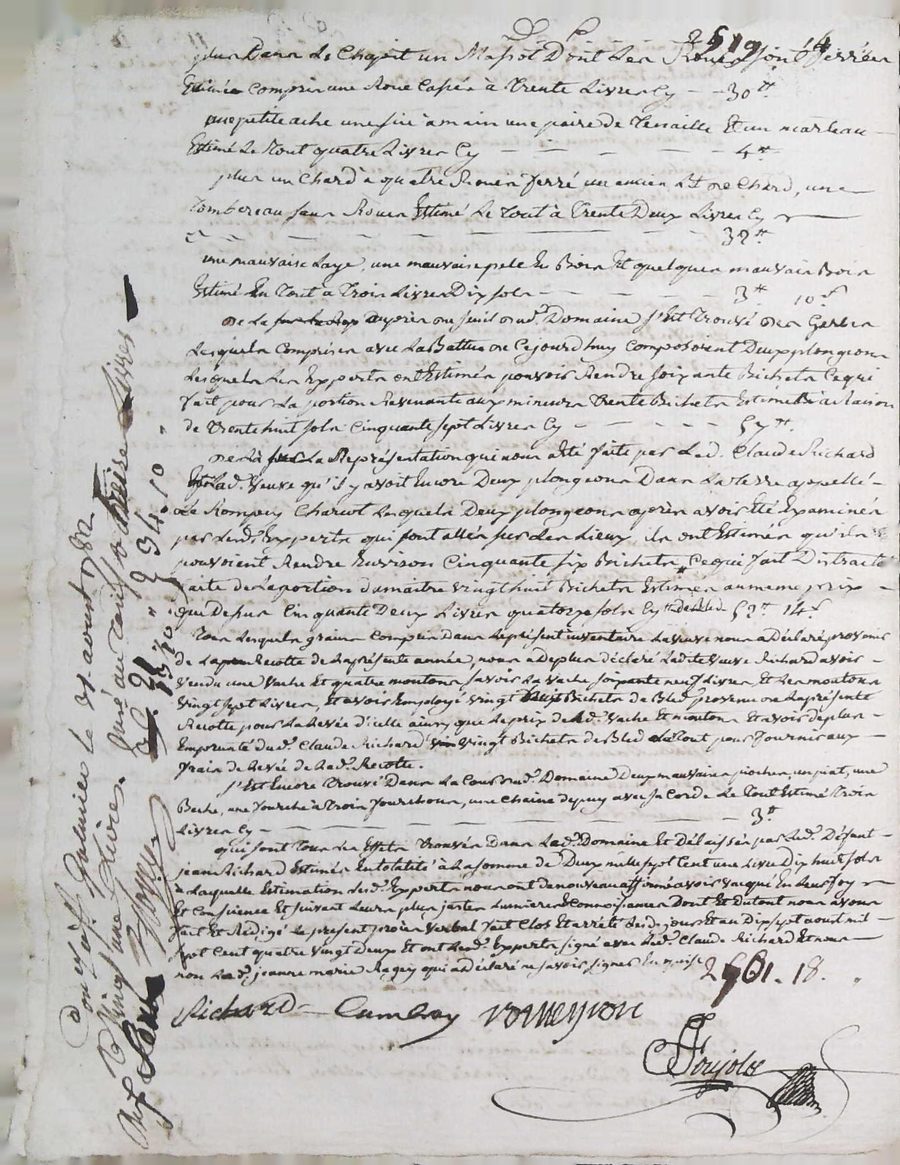 De P 2619 14
plus Dans Le Chapit un Massot Dont Les Roues sont ferrées
Estimée Compris une Roue Cassée à Trente Livres Cy — 30tt
une petite ache une sie à main une paire de Tenaille Et un marteau
Estimé Le Tout quatre Livres Cy — 4tt
plus un Chard à quatre Roues ferré un ancien Lit de Chard, une
Tombereau sans Roues Estimé Le Tout à Trente Deux Livres Cy
32tt
une mauvaise Laye, une mauvaise pele En Bois Et quelques mauvais Bois
Estimé En Tout à Trois Livres Dix sols — 3tt 10s
De La au seuil dud. Domaine s'Est Trouvé Des Gerbes
Lesquels Comprises avec La Battue de Cejourd'huy Composoient Deux plongeons
Lesquels Les Experts ont Estimés pouvoir Rendre soixante Bichets Ce qui
fait pour La portion Revenante aux mineurs Trente Bichets Estimé à Raison
de Trente huit sols Cinquante sept Livres Cy — 57tt
De La sur La Représentation qui nous a été faite par Led. Claude Richard
Et Lad. Veuve qu'il y avoit Encore Deux plongeons Dans La terre appellé
Le Rompey Charcot Lesquels Deux plongeons après avoir Eté Examinés
par Lesd. Experts qui sont allés sur Les Lieux, ils ont Estimés qu'ils
pouvoient Rendre Environ Cinquante six Bichets Ce qui fait Distraction
faite de La portion du maitre vingt huit Bichets Estimés au meme prix
que Dessus Cinquante Deux Livres quatorze sols Cy 52tt 14s
Tous Lesquels grains Compris Dans Le présent inventaire La veuve nous a Déclaré provenir
de La Recolte de La présente année, nous a De plus déclaré Ladite veuve Richard avoir
vendu une Vache Et quatre moutons savoir La Vache soixante neuf Livres, Et Les moutons
vingt sept Livres, Et avoir Employé vingt Bichets de Bled provenu de La présente
Recolte pour La Levée D'icelle ainsy que Le prix de Lad. Vache Et moutons Et avoir De plus
Emprunté dud. Claude Richard vingt Bichets de Bled Le Tout pour fournir aux
frais de Levée de Lad. Recolte.
s'Est Encore Trouvé Dans La Cour dud. Domaine Deux mauvaises pioches, un piat, une
Beche, une fourche à Trois fourchons, une Chaine de puy avec sa Corde Le Tout Estimé Trois
Livres Cy — 3tt
qui sont Tous Les Effets Trouvés Dans Led. Domaine Et Délaissés par Led. Défunt
jean Richard Estimés En totalité à La somme de Deux mille sept Cent une Livre Dix huit sols
à Laquelle Estimation Lesd. Experts nous ont De nouveau affirmé avoir vacqué En Leurs foy
Et Consience Et suivant Leurs plus justes Lumieres Et Connoissances Dont Et du tout nous avons
fait Et Redigé Le présent procès Verbal fait Clos Et arrété Lesd. jours Et an Dix sept aout mil
sept Cent quatre Vingt Deux Et ont Lesd. Experts signé avec Led. Claude Richard Et nous
non Lad. jeanne marie Ragey qui a Déclaré ne savoir signer Enquise
2701. 18.
Richard Cambray vorneyron
Poujolet
le 31 aout 1782
vingt une Livre